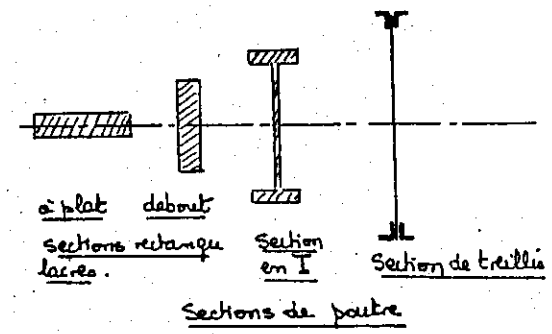 à plat debout
sections rectangu
laires.
Section
en I
Section de treillis
Sections de poutre